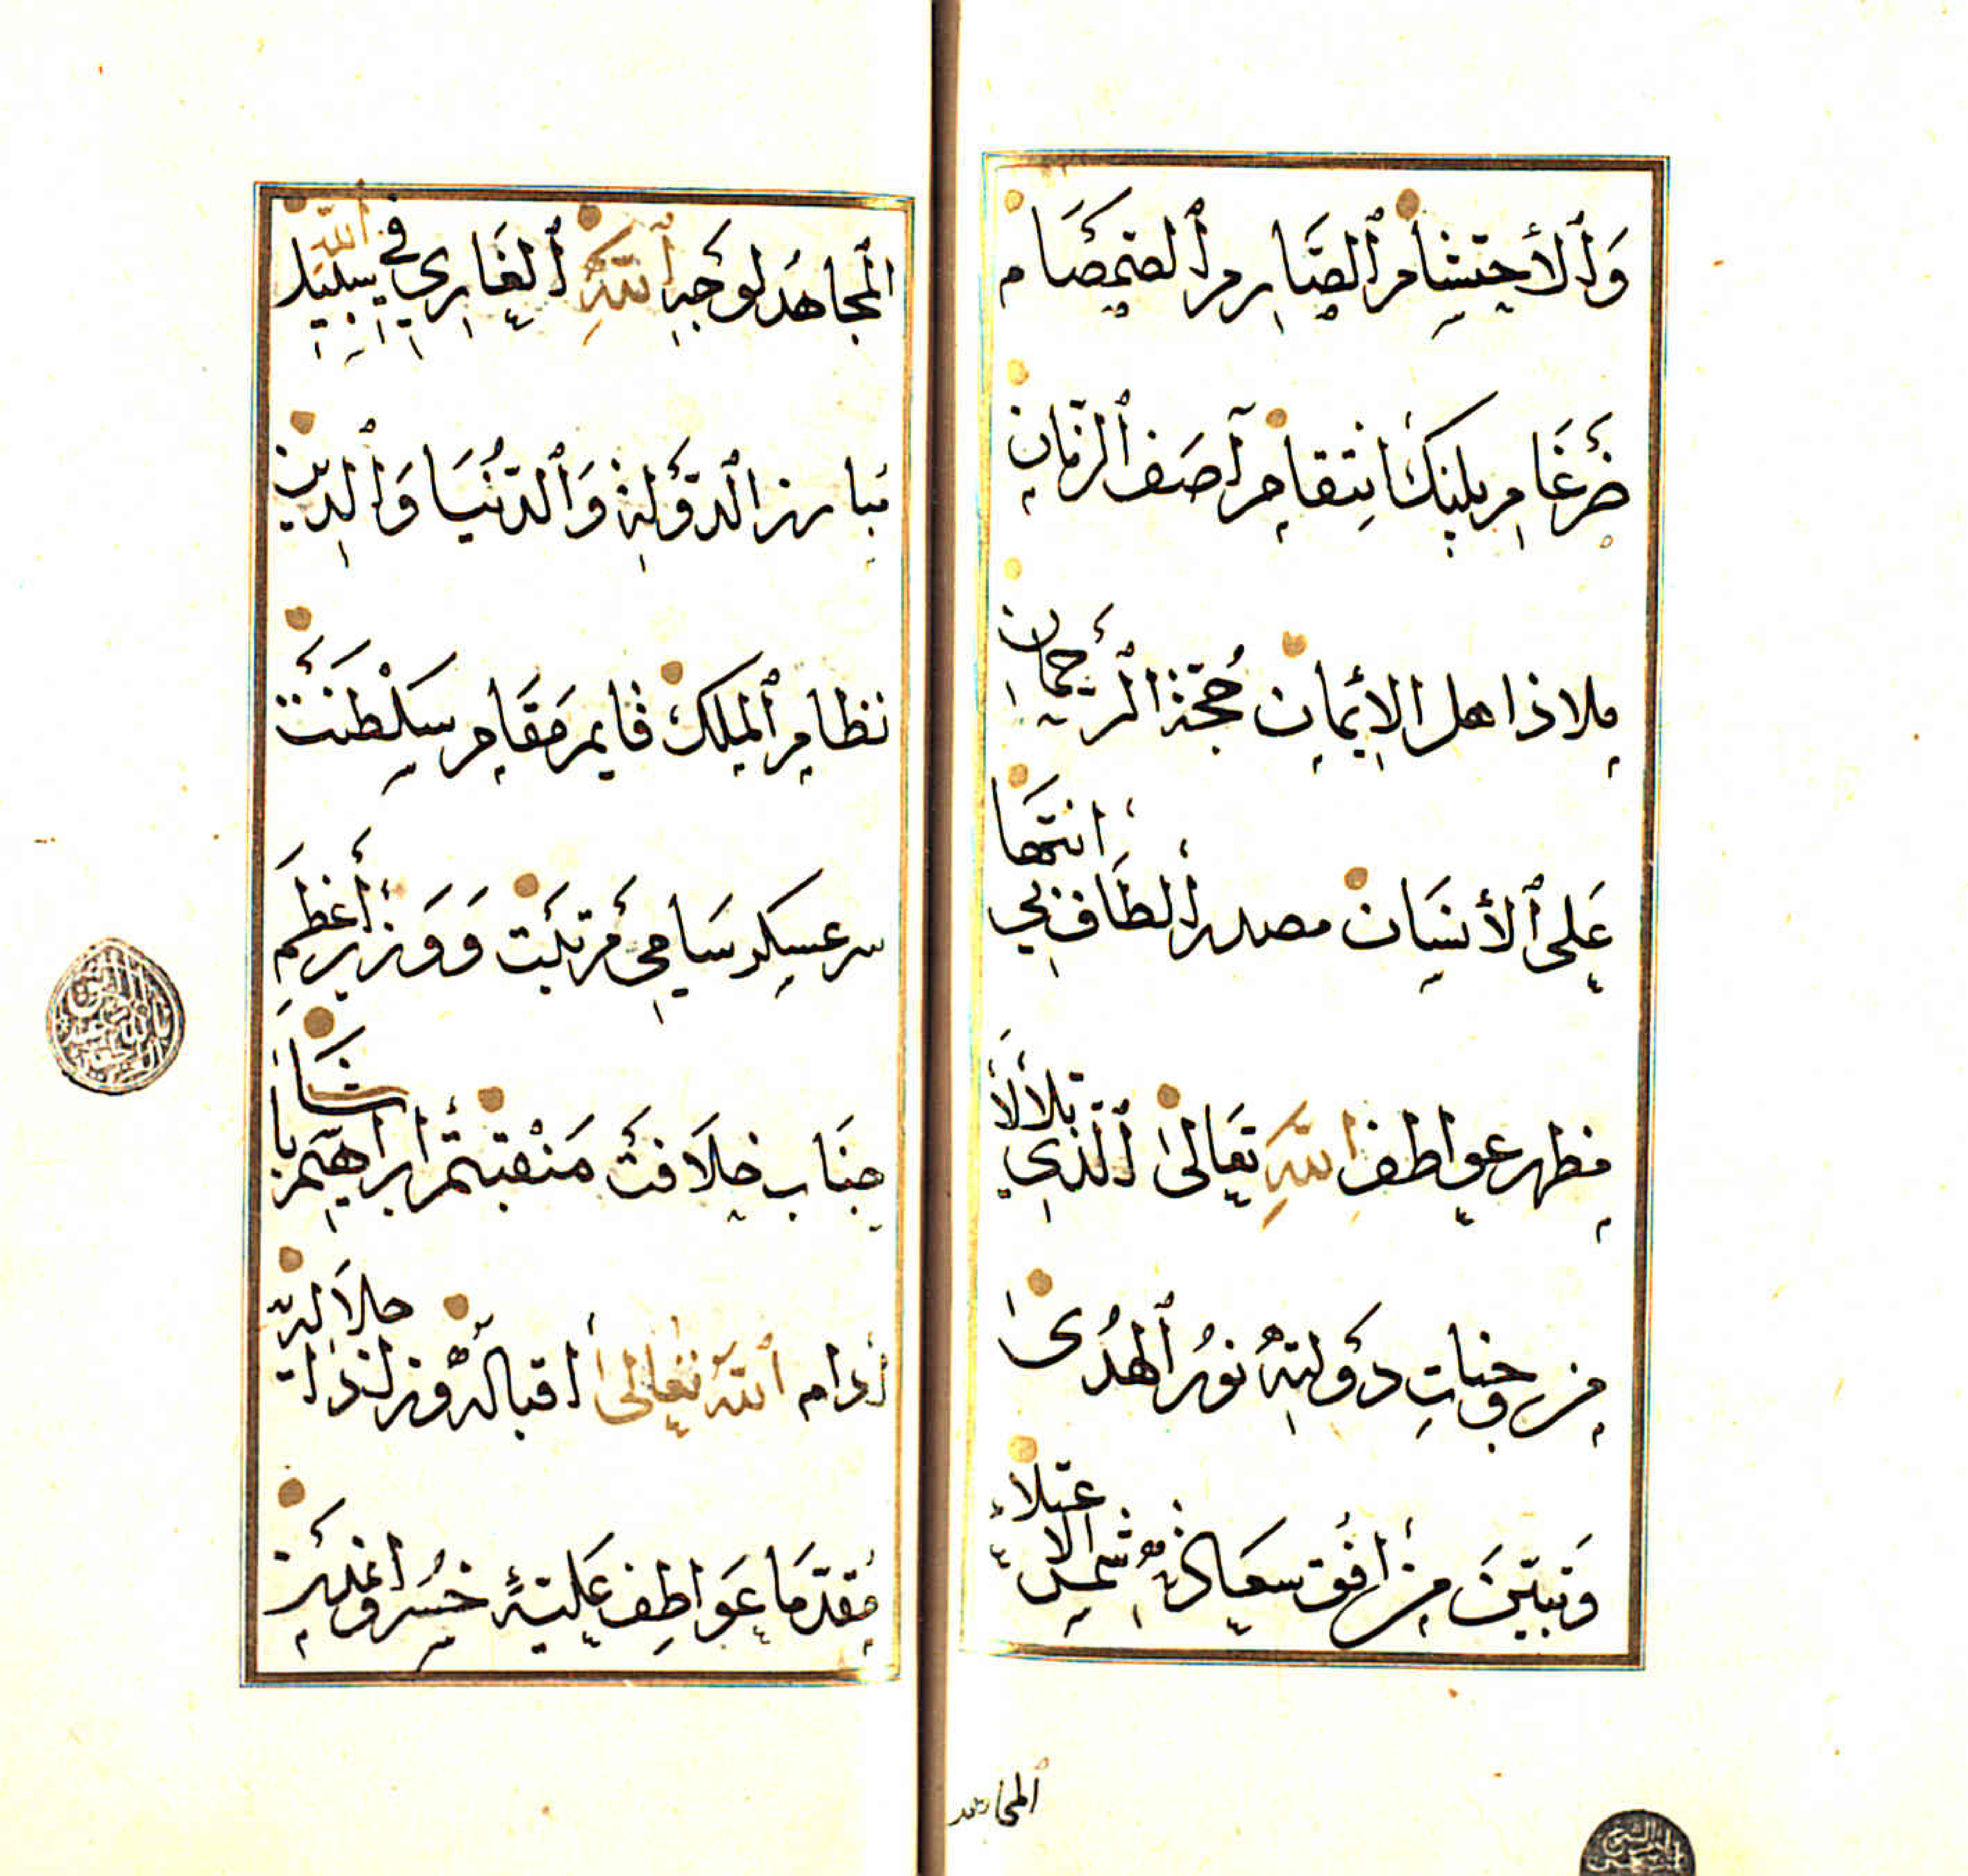 وَٱلأحتشام ٱلصَّارم ٱلصمصَام
ضرغَام پلنك انتقام آصَف ٱلزمان
ملاذ اهل الإيمان حُجّة ٱلرحمان
عَلى ٱلأنسَان مصدر ألطَاف بي انتها
مظهر عواطف اللّٰه تعَالى ٱلَّذي تلألأ
من وجنات دولته نورُ ٱلهدُى
وَتبيّنَ من أفق سعَادته شمس الاعتلاء
المجاهد
المجاهدُ لوجه ٱللّٰه ٱلغَازي في سبيل اللّٰه
مبارز الدّولة وَٱلدّنيَا وَٱلدين
نظام ٱلملك قايم مَقَام سَلْطنَت
سرعسكر سَامي مرتبَت وَوَزير أعظم
جنَاب خلَافت مَنْقبتم ابراهيم پاشَا
أدام ٱللّٰه تعالى اقباله وزاد جلاله
مقدّمَا عوَاطف عَليّهٔ خسروانمز